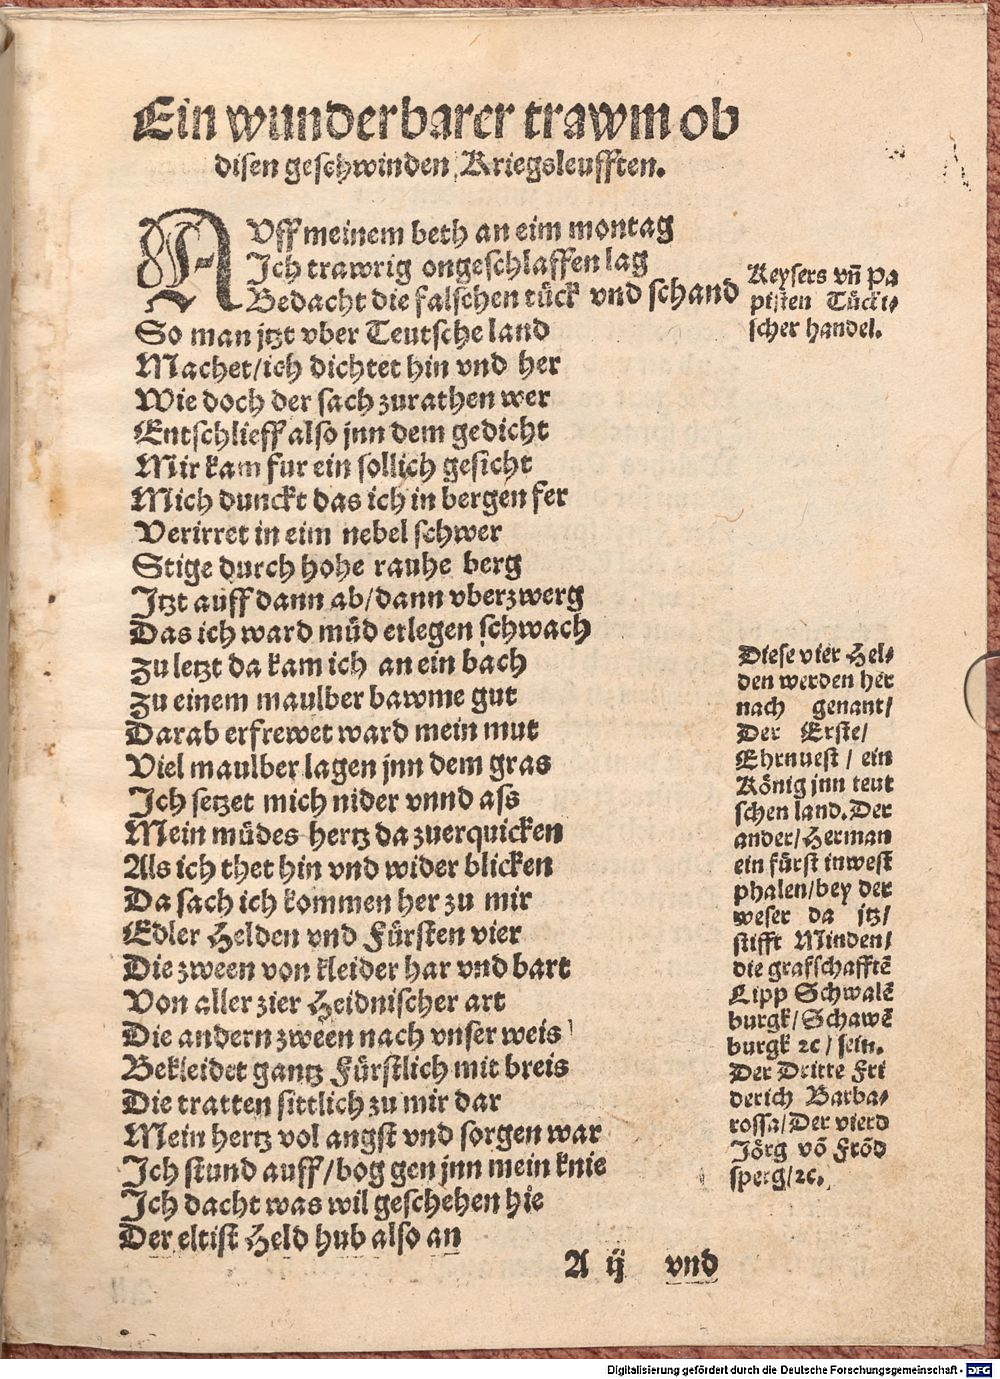 Ein wunderbarer trawm ob
disen geschwinden Kriegsleufften.
AUff meinem beth an eim montag
Ich trawrig ongeschlaffen lag
Bedacht die falschen tück vnd schand
So man jtzt vber Teutsche land
Machet/ich dichtet hin vnd her
Wie doch der sach zurathen wer
Entschlieff also jnn dem gedicht
Mir kam fur ein sollich gesicht
Mich dunckt das ich in bergen fer
Verirret in eim nebel schwer
Stige durch hohe rauhe berg
Jtzt auff dann ab/dann vberzwerg
Das ich ward müd erlegen schwach
Zu letzt da kam ich an ein bach
Zu einem maulber bawme gut
Darab erfrewet ward mein mut
Viel maulber lagen jnn dem gras
Ich setzet mich nider vnnd ass
Mein müdes hertz da zuerquicken
Als ich thet hin vnd wider blicken
Da sach ich kommen her zu mir
Edler Helden vnd Fürsten vier
Die zween von kleider har vnd bart
Von aller zier Heidnischer art
Die andern zween nach vnser weis
Bekleidet gantz Fürstlich mit breis
Die tratten sittlich zu mir dar
Mein hertz vol angst vnd sorgen war
Ich stund auff/bog gen jnn mein knie
Ich dacht was wil geschehen hie
Der eltist Held hub also an
A ij vnd
Keysers vñ Pa
pisten Tücki⸗
scher handel.
Diese vier Hel⸗
den werden her
nach genant/
Der Erste/
Ehrnuest / ein
König jnn teut
schen land. Der
ander/Herman
ein fürst in west
phalen/bey der
weser da jtz/
stifft Minden/
die grafschafftē
Lipp Schwalē
burgk/Schawē
burgk ꝛc/ sein.
Der Dritte Fri
derich Barba⸗
rossa/Der vierd
Jörg vō Frōd
sperg/ꝛc.
Digitalisierung gefördert durch die Deutsche Forschungsgemeinschaft - DFG